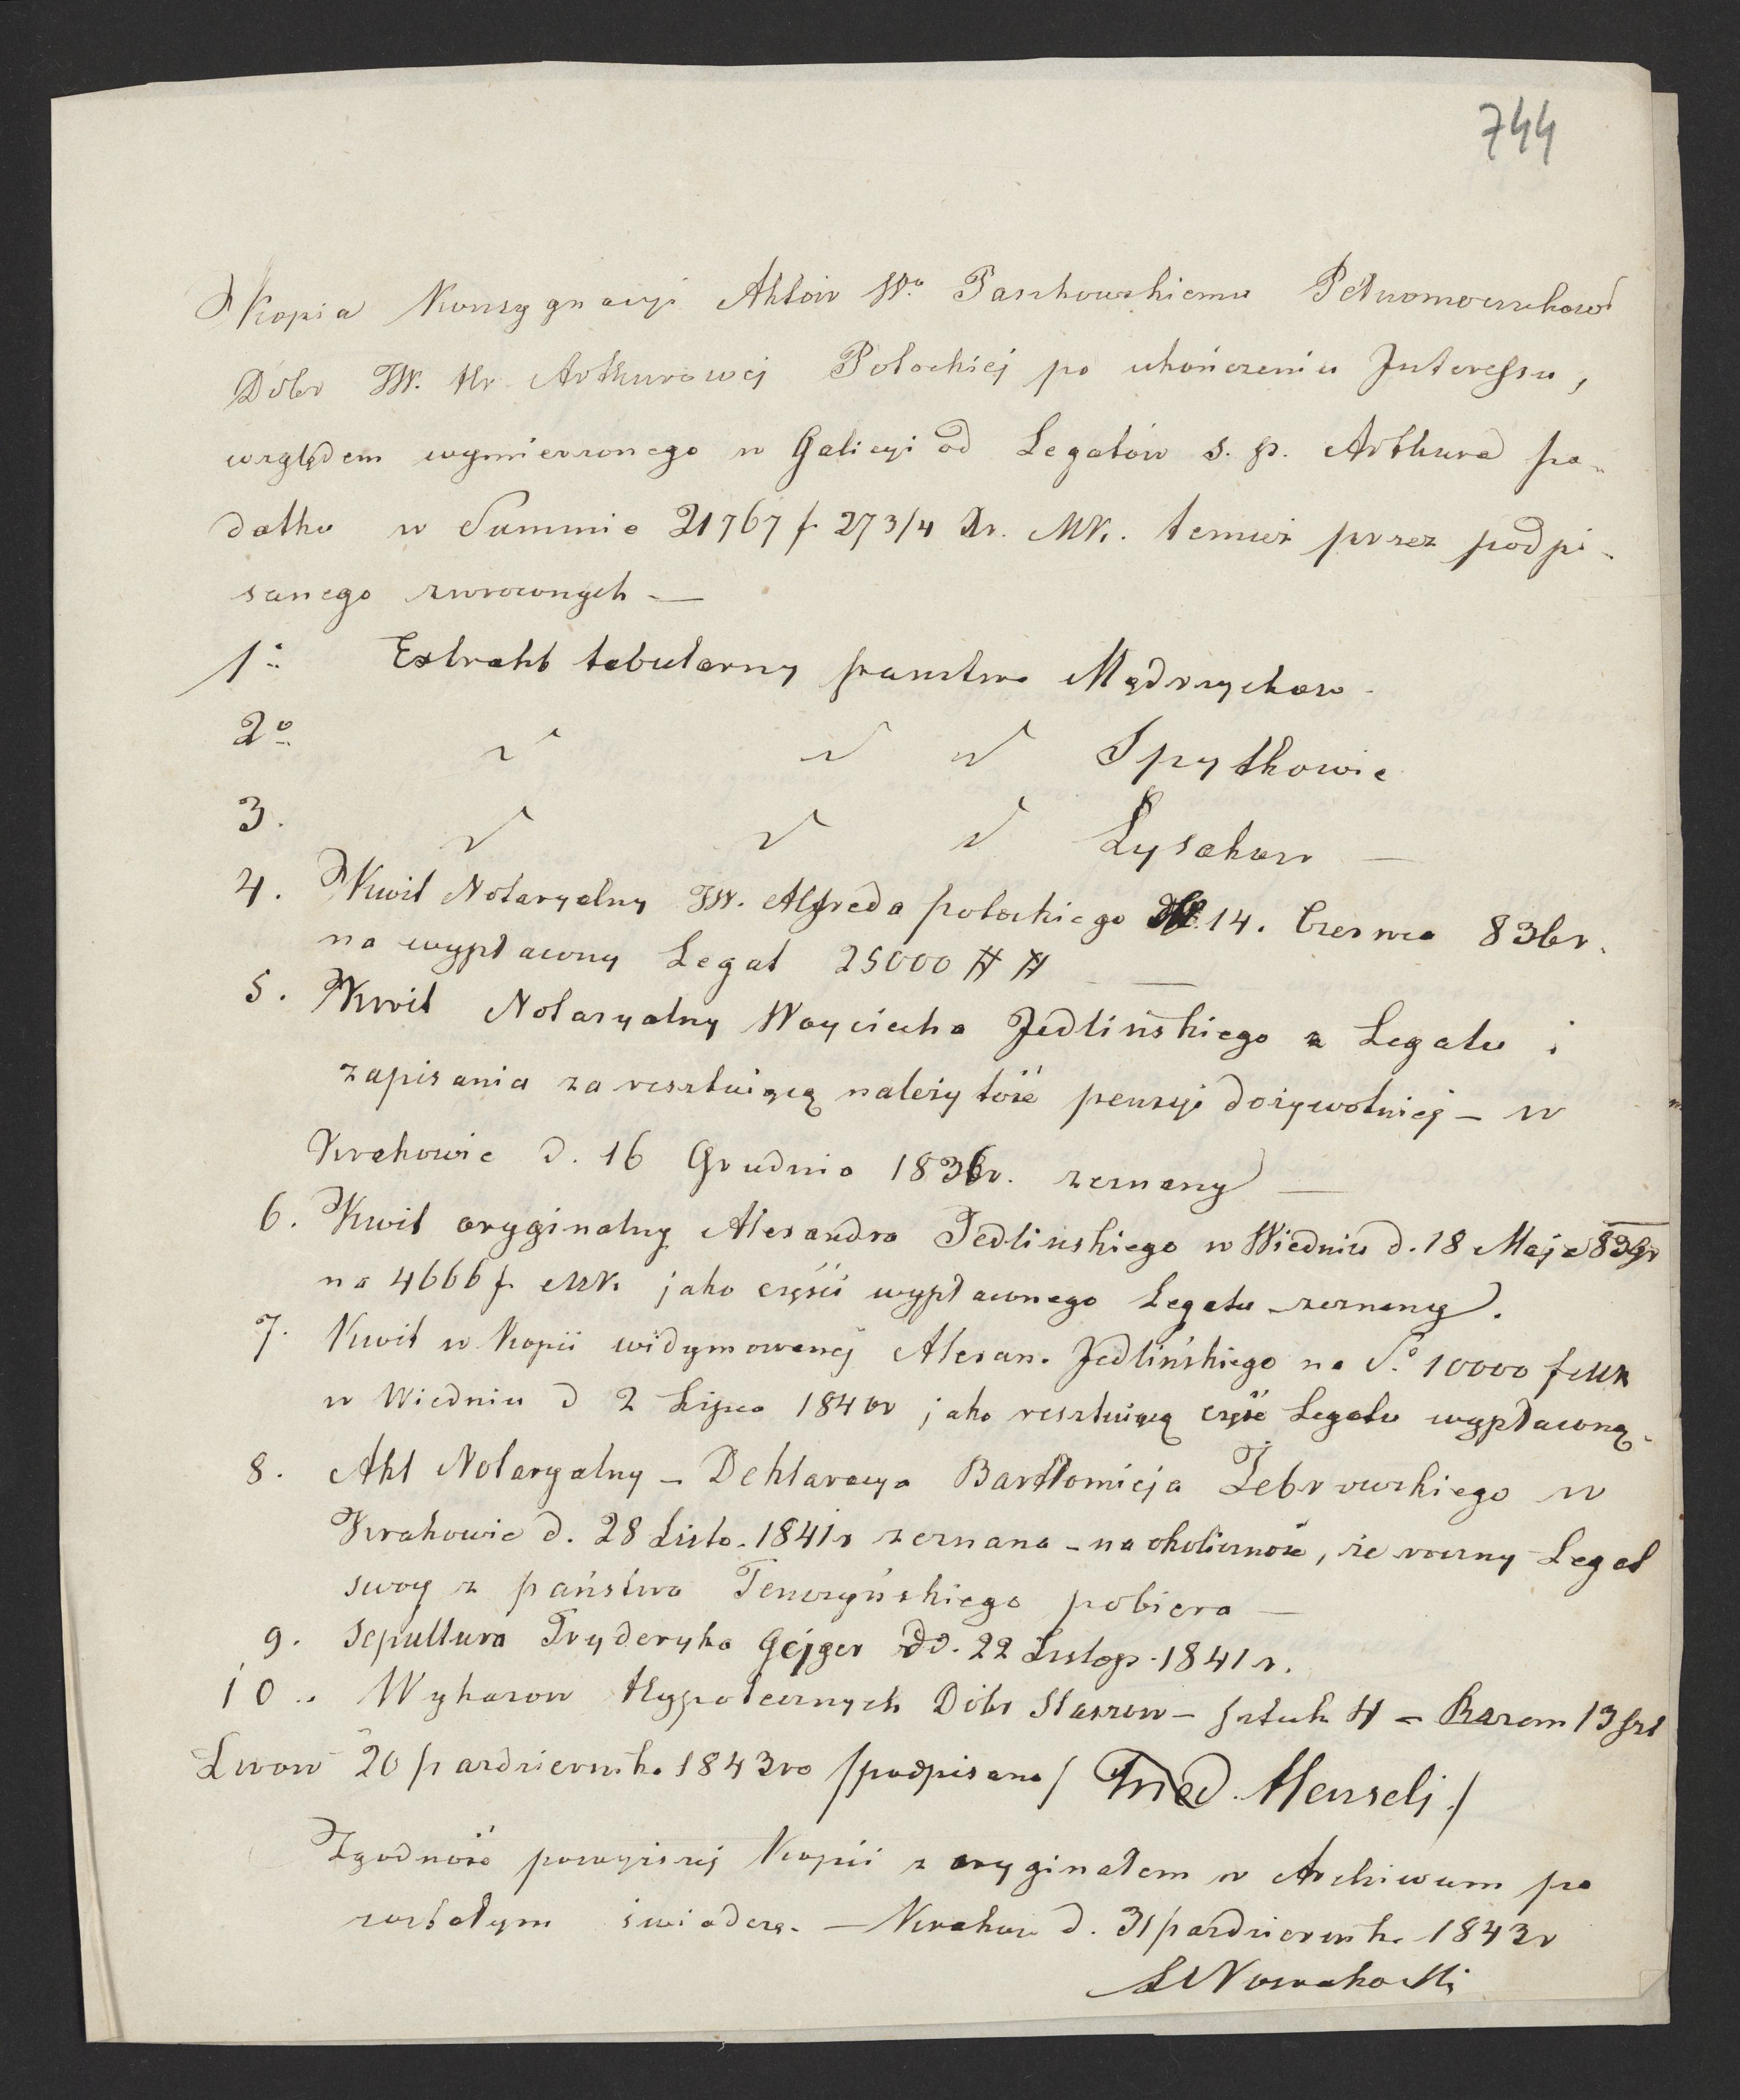 744
Kopia Konsygnacyi Aktów Wu Paszkowskiemu Pełnomocnikowi
Dóbr JW. Hr. Arthurowej Potockiej po ukończeniu Interessu,
względem wymierzonego w Galicyi od Legatów s. p. Arthura po-
datku w Summie 21767 f 27 3/4 Xr. MK. temuż przez podpi-
sanego zwróconych. —
1o Extrakt tabularny państwa Mądrzychow -
2o " " " Spytkowic
3. " " " Łysakow —
4. Kwit Notaryalny JW. Alfreda potockiego 14. Czerwca 836 r.
na wypłacony Legat 25000 # # —
5. Kwit Notaryalny Woyciecha Jedlińskiego z Legatu i
zapisania za resztuiącą należytość pensyi dożywotniej — w
Krakowie d. 16 Grudnia 1836 r. zeznany —
6. Kwit oryginalny Alexandra Jedlinskiego w Wiedniu d. 18 Maja 839r
na 4666 f. MK. jako część wypłaconego Legatu zeznany.
7. Kwit w Kopii widymowanej Alexan. Jedlińskiego na S.o 10000 f MK
w Wiedniu d 2 Lipca 1840r jako resztuiącą część Legatu wypłaconą.
8. Akt Notaryalny — Deklaracya Bartłomieja Żebrowskiego w
Krakowie d. 28 Listo. 1841 r zeznana - na okoliczność, że roczny Legat
swoy z państwa Tenczyńskiego pobiera —
9. Sepultura Fryderyka Gejger dd. 22 Listop. 1841 r.
10.. Wykazow Hypotecznych Dóbr Staszow — sztuk 4 — Razem 13 szt
Lwow 20 pazdziernika 1843 ro /podpisano/ Fried. Henseli /
Zgodność powyższej Kopii z oryginałem w Archiwum po
zostałym świadczę. — Krakow d. 31 pazdziernika 1843 r
Nowakowski